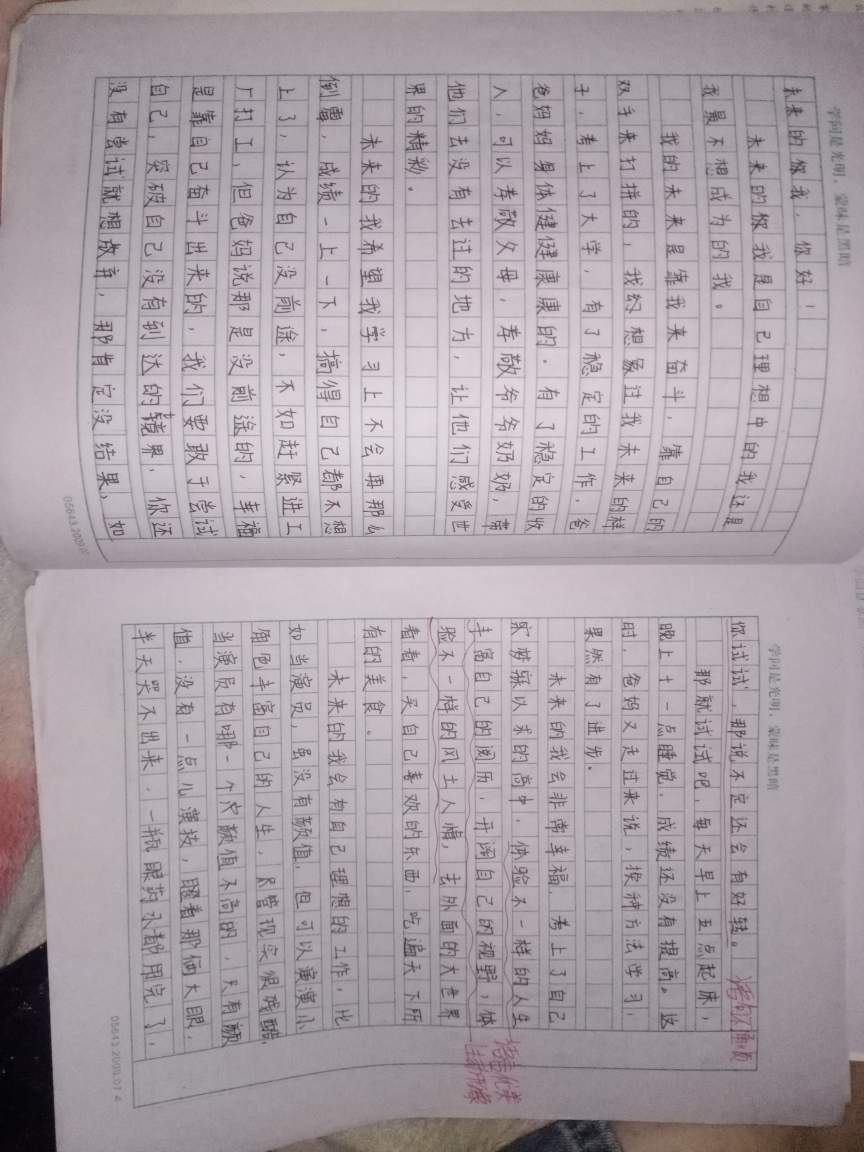 学问是光明，蒙昧是黑暗
未来的你我，你好！
未来的你我是自己理想中的我还是
我最不想成为的我。
我的未来是靠我来奋斗，靠自己的
双手来打拼的，我幻想象过我未来的样
子，考上了大学，有了稳定的工作，爸
爸妈妈身体健健康康的。有了稳定的收
入，可以孝敬父母，孝敬爷爷奶奶，带
他们去没有去过的地方，让他们感受世
果的精彩。
未来的我希望我学习上不会再那么
倒霉，成绩一上一下，搞得自己都不想
上了，认为自己没前途，不如赶紧进工
厂打工，但爸妈说那是没前途的，幸福
是靠自己奋斗出来的，我们要敢于尝试
自己，突破自己没有到达的境界，你还
没有尝试就想放弃，那肯定没结果，如
05643.2009.07
学问是光明，蒙昧是黑暗
你试试，那说不定还会有好转。
那就试试吧，每天早上五点起床，
晚上十一点睡觉，成绩还没有提高。这
时，爸妈又走过来说，换种方法学习，
果然有了进步。
未来的我会非常幸福，考上了自己
梦寐以求的高中，体验不一样的人生
丰富自己的阅历，开阔自己的视野，体
验不一样的风土人情，去外面的大世界
看看，买自己喜欢的东西，吃遍天下所
有的美食。
未来的我会有自己理想的工作，比
如当演员，虽没有颜值，但可以演小
角色丰富自己的人生，尽管现实很残酷，
当演员有哪一个颜值不高的，只有颜
值，没有一点儿演技，瞪着那俩大眼，
半天哭不出来，一瓶眼药水都用完了，
语言优美
生动形象
05643.2009.07 4